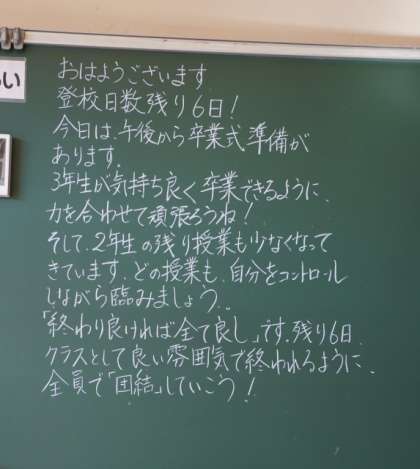 おはようございます
登校日数残り6日!
今日は、午後から卒業式準備が
あります。
3年生が気持ち良く卒業できるように、
力を合わせて頑張ろうね!
そして、2年生の残り授業も少なくなって
きています。どの授業も、自分をコントロール
しながら臨みましょう。
「終わり良ければ全て良し」です。残り6日、
クラスとして良い雰囲気で終われるように、
全員で「団結」していこう!
い